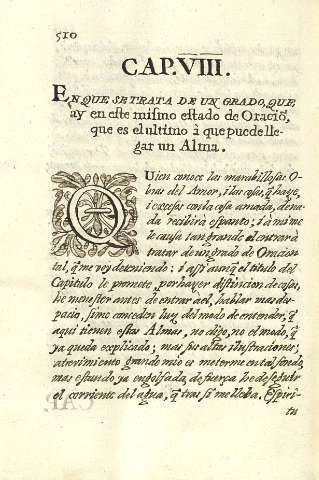 510
CAP.VIII.
EN QUE SE TRATA DE UN GRADO, QUE
ay en este mismo estado de Oraciõ,
que es el ultimo à que puede lle-
gar un Alma.
QUien conoce las marabillosas O-
bras del Amor, i las cosas, q̃ haze,
i excesos con la cosa amada, de na-
da recibirá espanto; i à mi me
le causa tan grande el entrar à
tratar de un grado de Oracion
tal, q̃ me voy deteniendo; i assi aunq̃ el titulo del
Capitulo le promete, por hayer distincion de cosas,
he menester antes de entrar acel, hablar mas des-
pacio, si me conceden luz del modo de entender, q̃
aqui tienen estas Almas, no digo, no el modo, q̃
ya queda explicado; mas sus altas ilustraciones;
atrevimiento grande mio es meterme en tal fondo,
mas estando ya engolfada, de fuerça he de seguir
el corriente del agua, q̃ tras si me lleba. Espiri-
tu